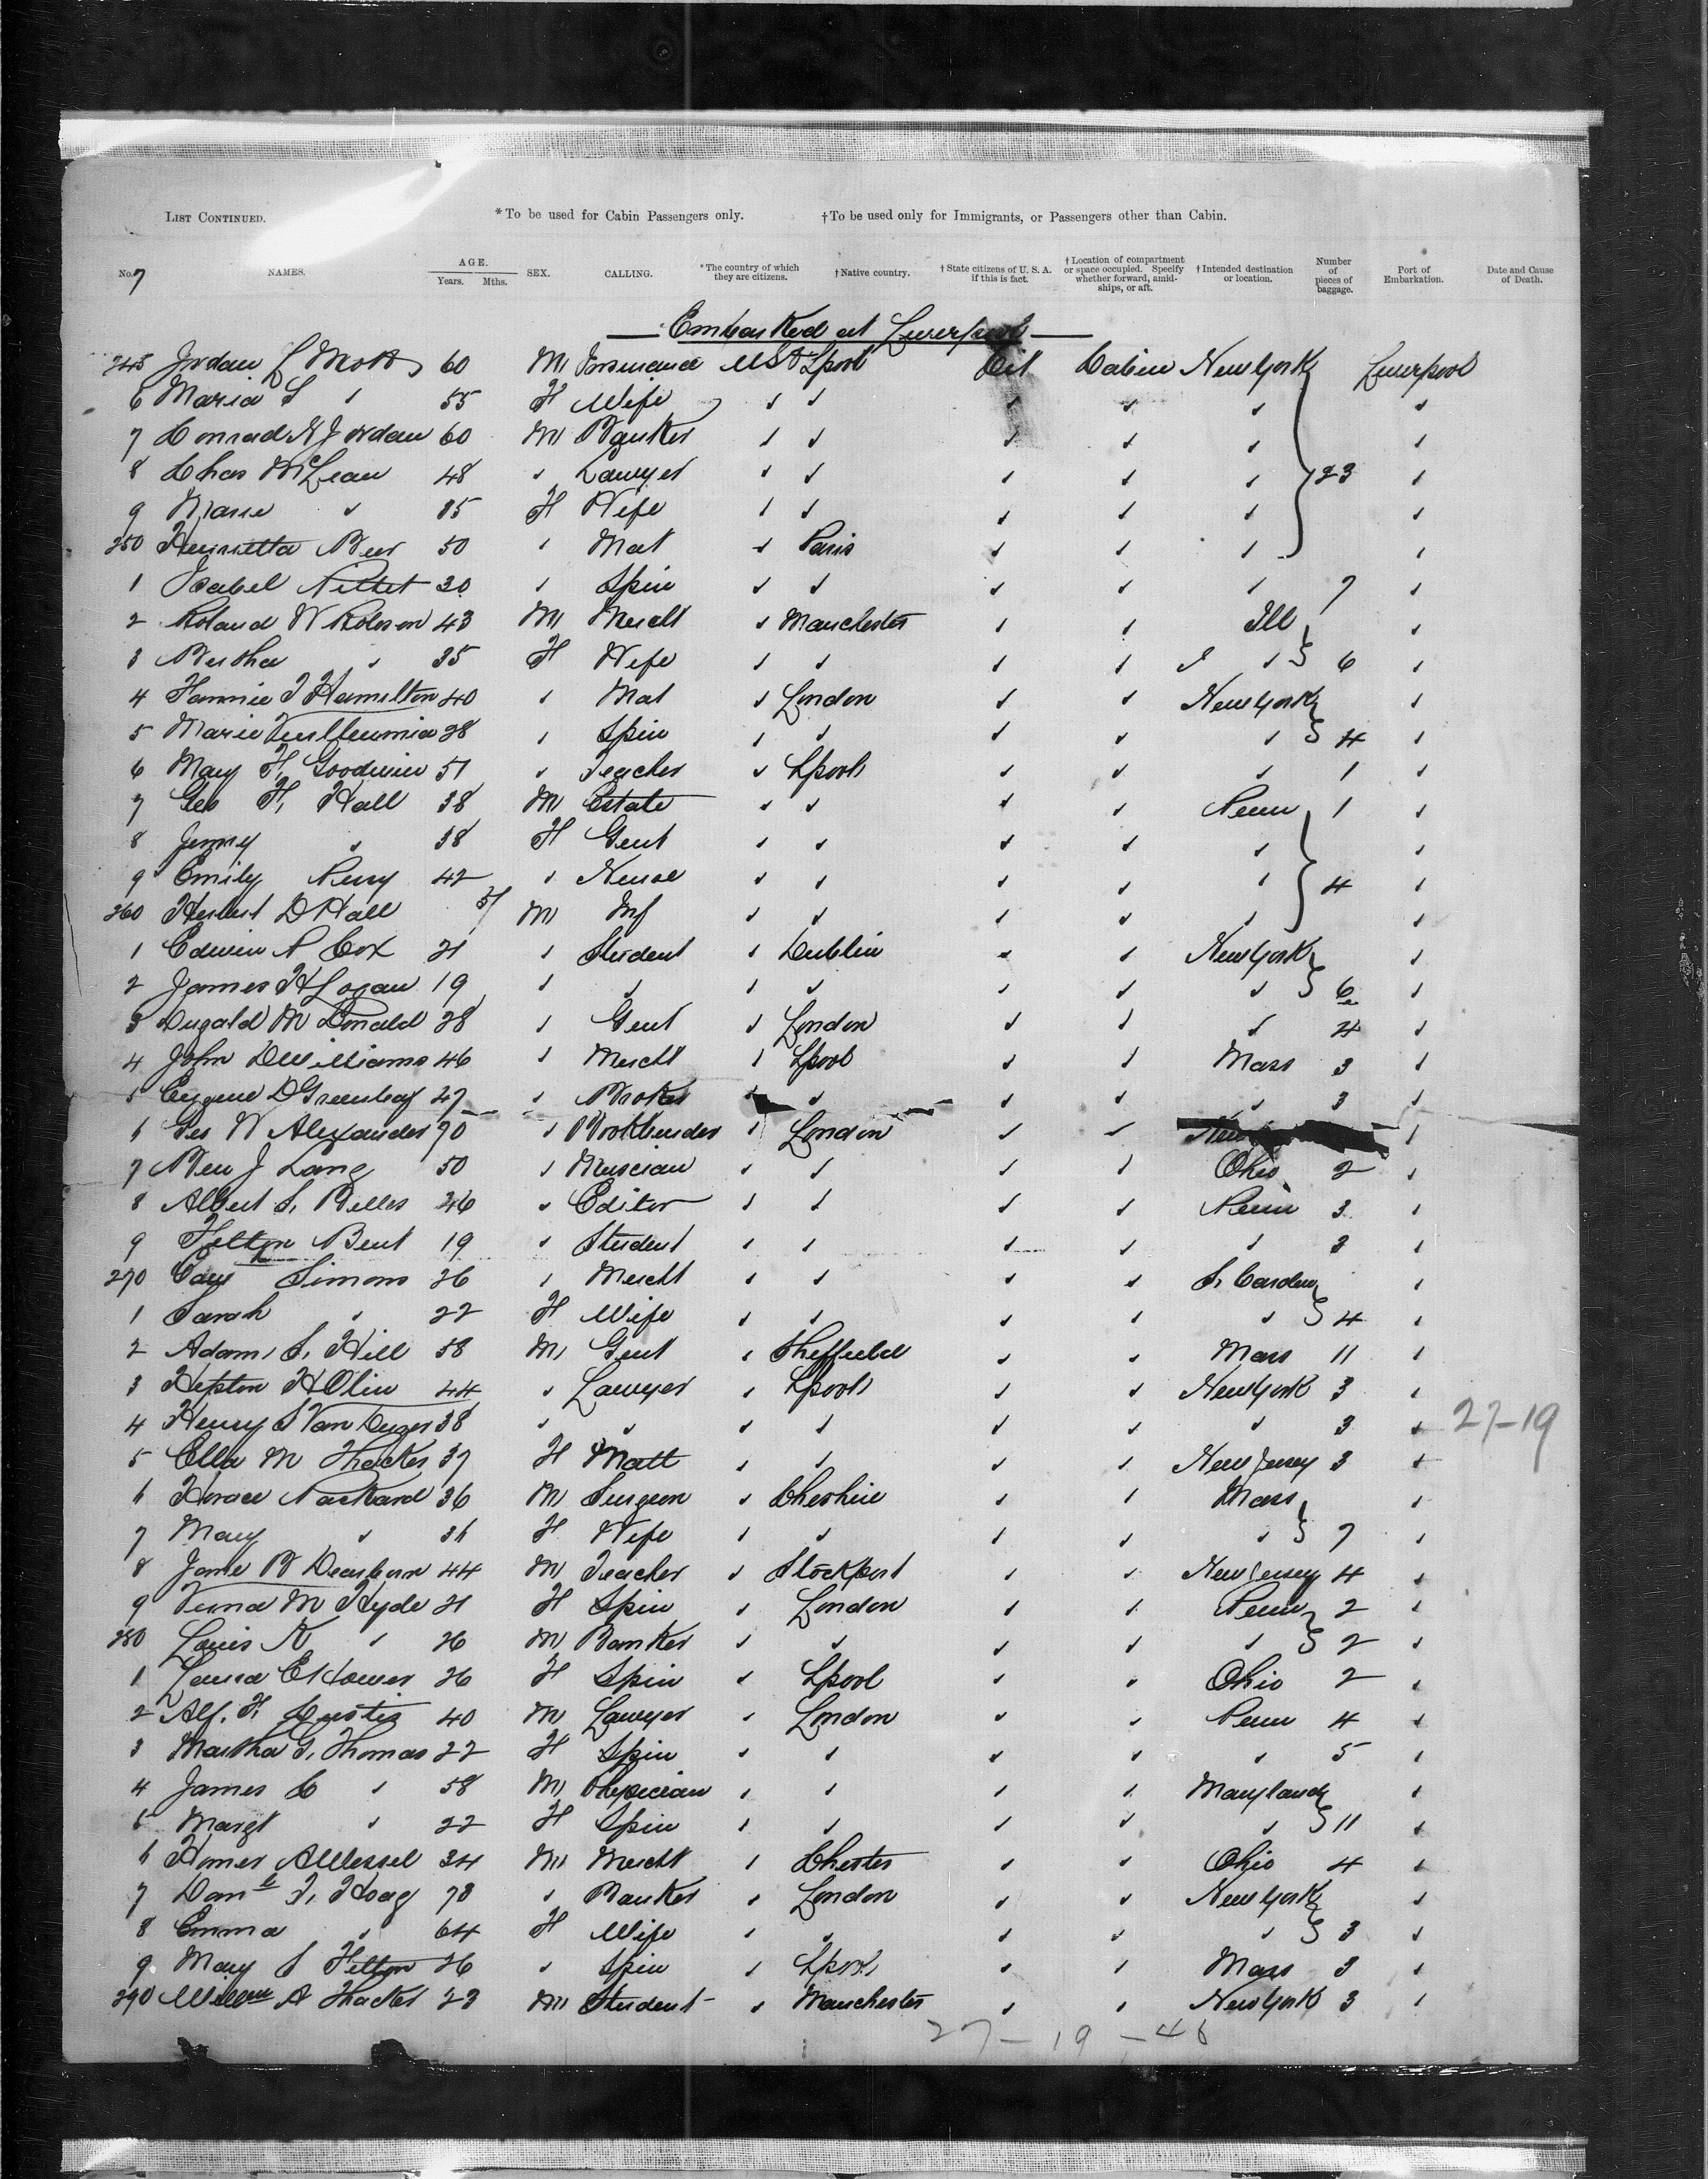 LIST CONTINUED. *To be used for Cabin Passengers only. †To be used only for Immigrants, or Passengers other than Cabin.
No. 7 NAMES. AGE. Years. Mths. SEX. CALLING. *The country of which they are citizens. †Native country. †State citizens of U. S. A. if this is fact. †Location of compartment or space occupied. Specify whether forward, amidships, or aft. †Intended destination or location. Number of pieces of baggage. Port of Embarkation. Date and Cause of Death.
Embarked at Liverpool
245 Jordan L Mott 60 M USA Lpool Cit Cabin New York Liverpool
6 Maria S " 55 F Wife " " " " " "
7 Conrad N Jordan 60 M Banker " " " " " "
8 Chas McLean 48 " Lawyer " " " " " 23 "
9 Marie " 35 F Wife " " " " " "
250 Henrietta Beer 50 " Mat " Paris " " " "
1 Isabel 30 " Spin " " " " " 7 "
2 Roland W Roberson 43 M Mercht " Manchester " " Ill "
3 Bertha " 35 F Wife " " " " " 6 "
4 Fannie T Hamilton 40 " Mat " London " " New York "
5 Marie 28 " Spin " " " " " 4 "
6 Mary F. Goodwin 51 " Teacher " Lpool " " " 1 "
7 Geo F. Hall 38 M Estate " " " " Penn 1 "
8 Jenny " 38 F Gent " " " " " "
9 Emily Perry 42 " Nurse " " " " " 4 "
260 Herbert D Hall M Inf " " " " " "
1 Edwin P Cox 21 " Student " Dublin " " New York "
2 James H Logan 19 " " " " " " " 6 "
3 Dugald McDonald 28 " Gent " London " " " 4 "
4 John D Williams 46 " Mercht " Lpool " " Mass 3 "
5 Eugene D Greenleaf 47 " Broker " " " " " 3 "
6 Geo W Alexander 70 " Bookbinder " London " " New "
7 Ben J Lang 50 " Musician " " " " Ohio 2 "
8 Albert S. Bolles 46 " Editor " " " " Penn 3 "
9 Bent 19 " Student " " " " " 3 "
270 Simons 26 " Mercht " " " " S. Carolina "
1 Sarah " 22 F Wife " " " " " 4 "
2 Adam S. Hill 58 M Gent " Sheffield " " Mass 11 "
3 H Olin 44 " Lawyer " Lpool " " New York 3 "
4 Henry S Van Duzer 38 " " " " " " " 3 " 27-19
5 Ella M Thacker 37 F Matt " " " " New Jersey 3 "
6 Horace Packard 36 M Surgeon " Cheshire " " Mass "
7 Mary " 36 F Wife " " " " " 7 "
8 Jane B Dearborn 44 M Teacher " Stockport " " New Jersey 4 "
9 M Hyde 21 F Spin " London " " Penn 2 "
280 Louis K " 26 M Banker " " " " " 2 "
1 Laura E Hower 26 F Spin " Lpool " " Ohio 2 "
2 Alf. F. Custis 40 M Lawyer " London " " Penn 4 "
3 Martha G. Thomas 22 F Spin " " " " " 5 "
4 James C " 58 M Physician " " " " Maryland "
5 Margt " 22 F Spin " " " " " 11 "
6 Homer A Wessel 34 M Mercht " Chester " " Ohio 4 "
7 Danl T. Hoag 78 " Banker " London " " New York "
8 Emma " 64 F Wife " " " " " 3 "
9 Mary S Felton 26 " Spin " Lpool " " Mass 3 "
290 A Thacker 23 M Student " Manchester " " New York 3 "
27-19-46